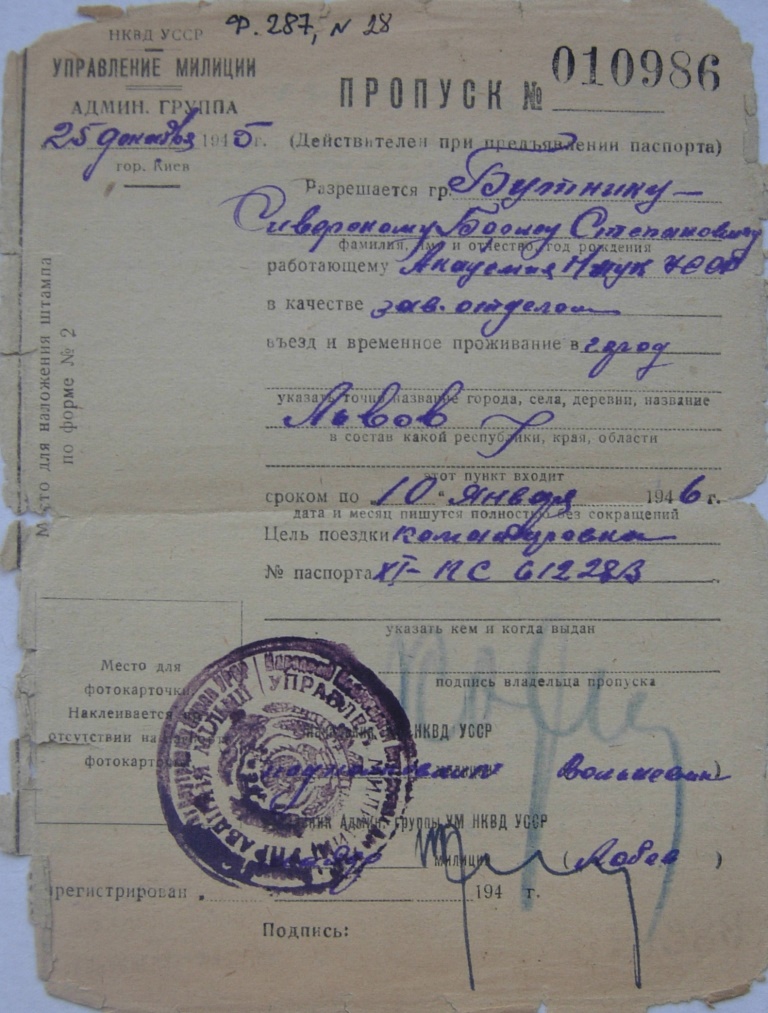 Ф. 287, N 28
НКВД УССР
УПРАВЛЕНИЕ МИЛИЦИИ
АДМИН. ГРУППА
25 декабря 1945 г.
гор. Киев
ПРОПУСК № 010986
(Действителен при предъявлении паспорта)
Разрешается гр. Бутнику-
Сиверскому Борису Степановичу
фамилия, имя и отчество, год рождения
работающему Академия Наук УССР
в качестве зав. отделом
въезд и временное проживание в город
указать точно название города, села, деревни, название
Львов
в состав какой республики, края, области
этот пункт входит
сроком по 10 " Января 1946 г.
дата и месяц пишутся полностью без сокращений
Цель поездки командировка
№ паспорта XI-ПС 612283
указать кем и когда выдан
подпись владельца пропуска
Место для наложения штампа
по форме № 2
Место для
фотокарточки
Наклеивается
отсутствии на
фотокарточ
НКВД УССР
УПРАВЛЕ МИЛИ
УПРАВЛІННЯ МІЛІЦІЇ
Админ. группы УМ НКВД УССР
милиции ( )
регистрирован 194 г.
Подпись: